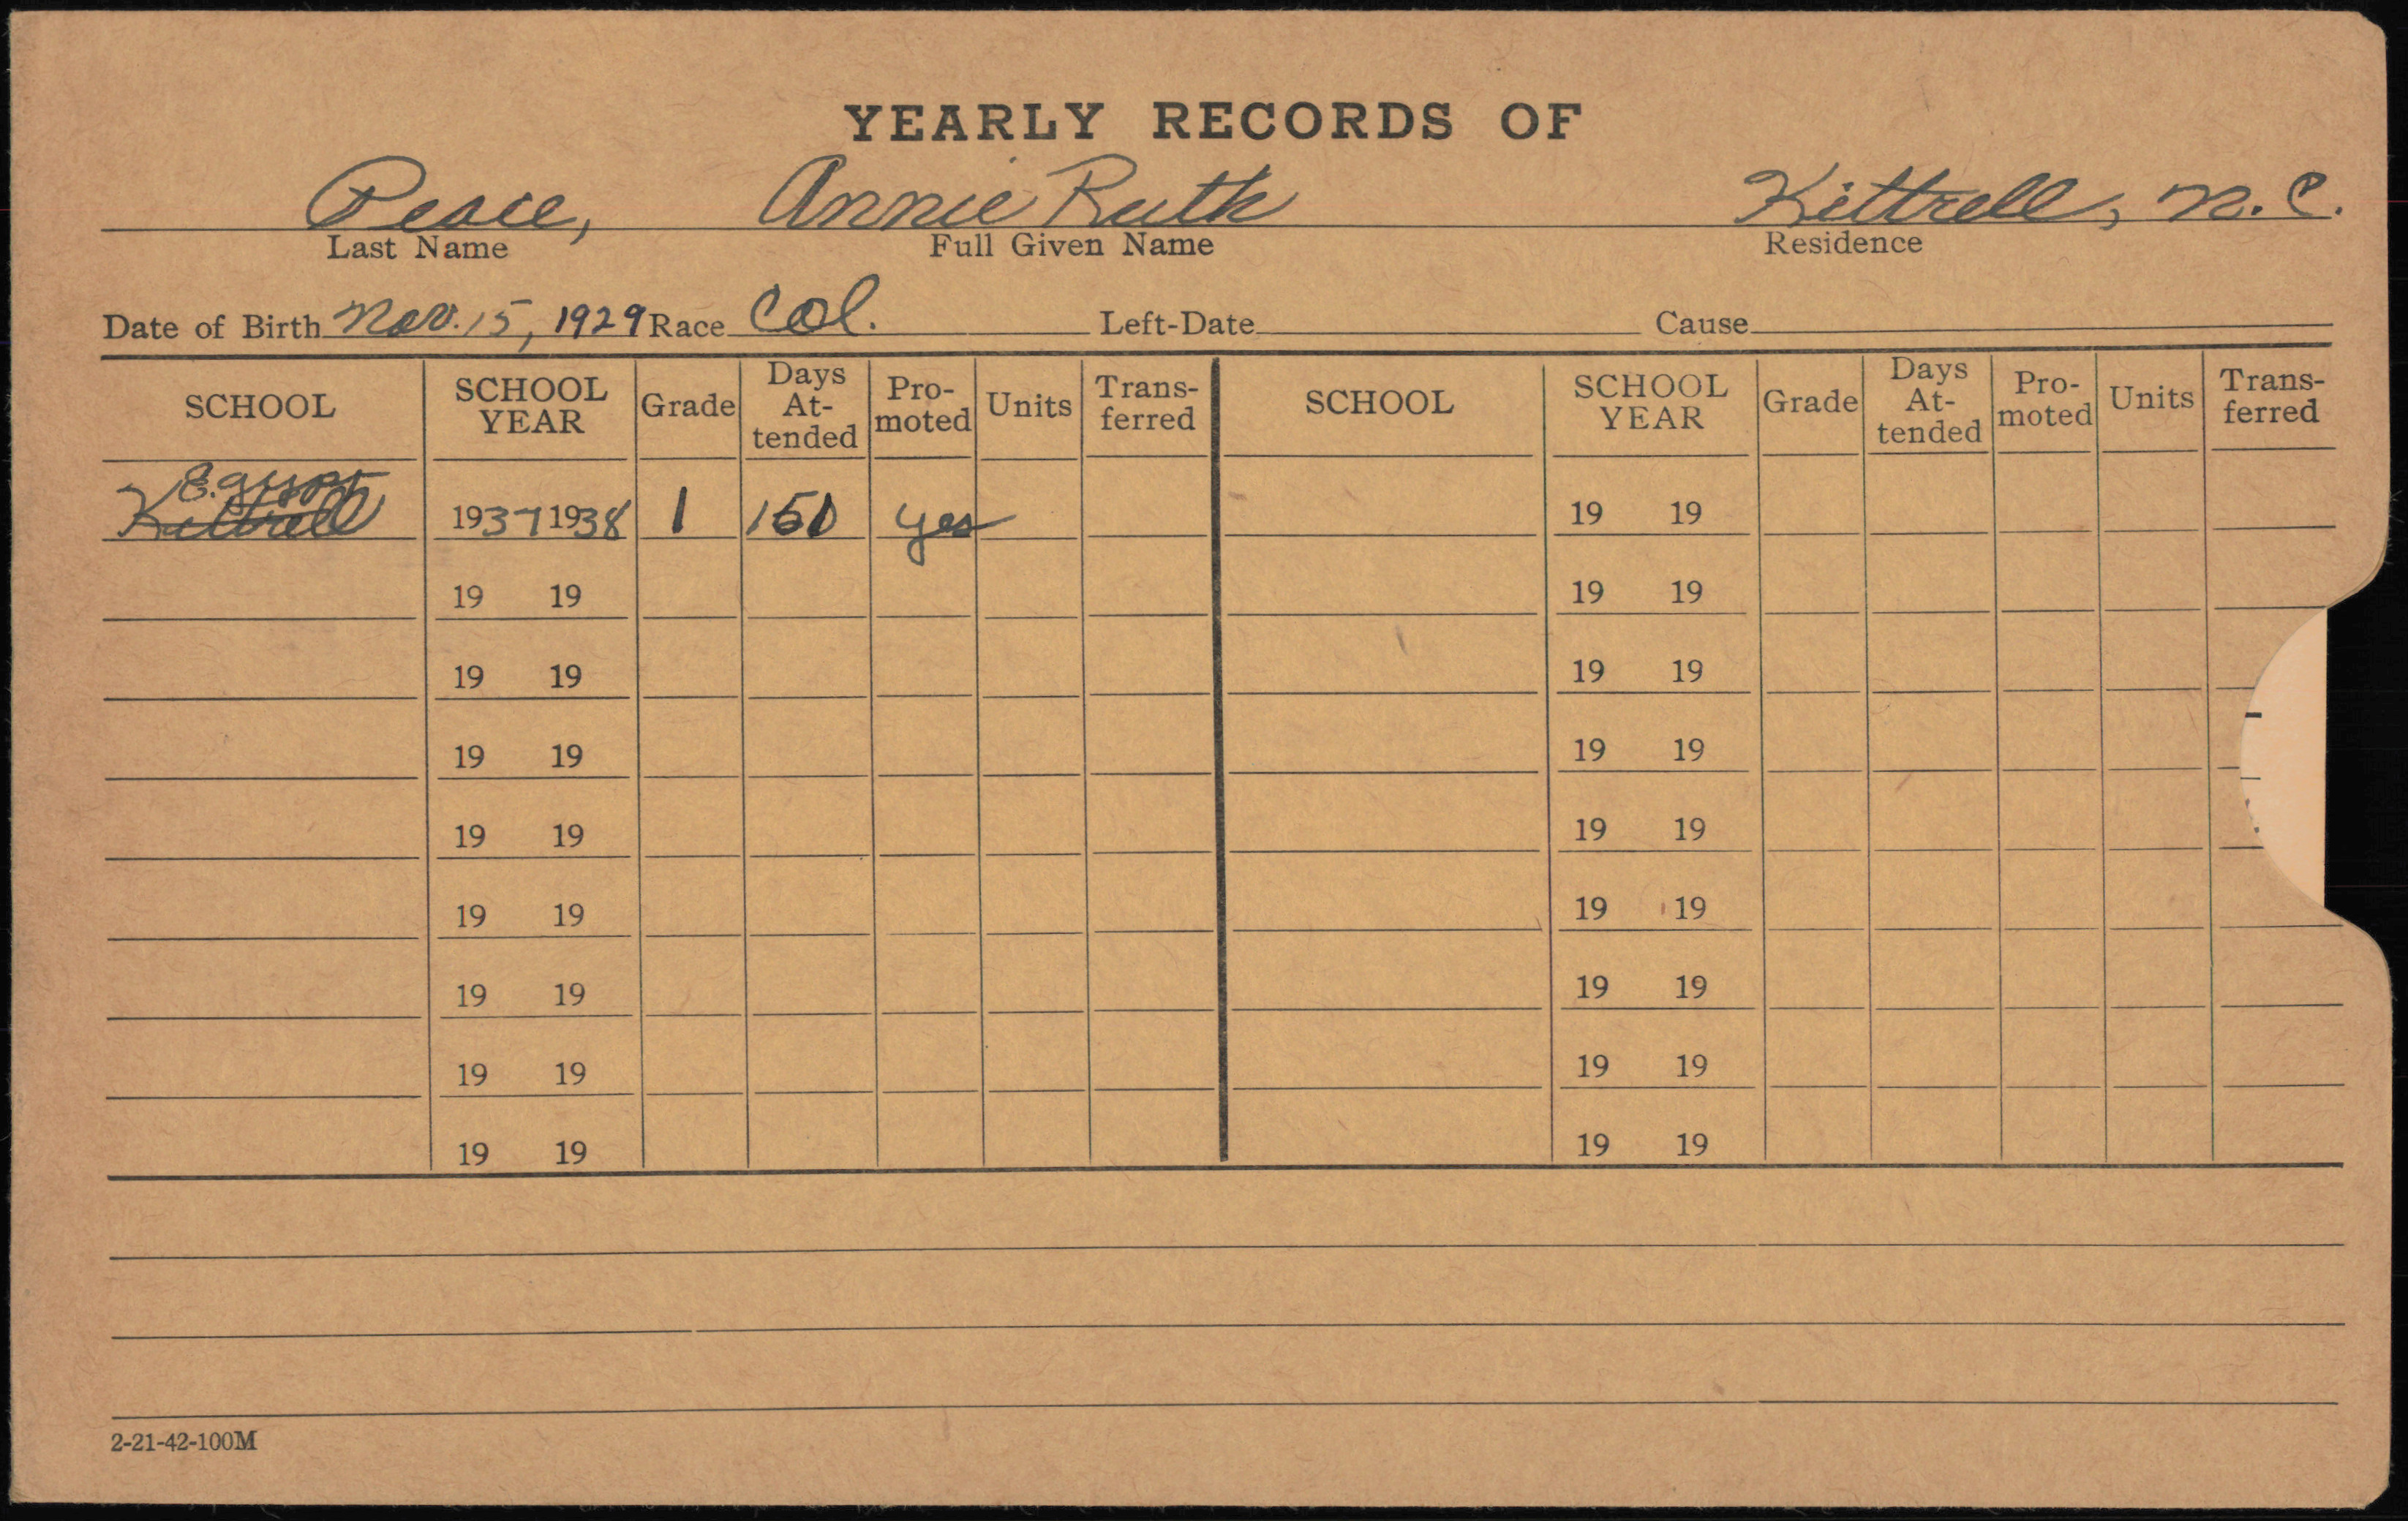 YEARLY RECORDS OF
Peace, Annie Ruth Kittrell, N.C.
Last Name Full Given Name Residence
Date of Birth Nov. 15, 1929 Race Col. Left-Date Cause
SCHOOL SCHOOL YEAR Grade Days At-tended Pro-moted Units Trans-ferred SCHOOL SCHOOL YEAR Grade Days At-tended Pro-moted Units Trans-ferred
Egypt
Kittrell 1937 1938 1 yes 19 19
19 19 19 19
19 19 19 19
19 19 19 19
19 19 19 19
19 19 19 19
19 19 19 19
19 19 19 19
19 19 19 19
2-21-42-100M